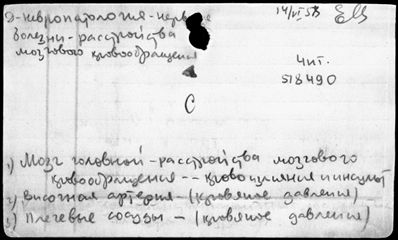 Э-невропатология-нервные
болезни-расстройства
мозгового кровообращения
14/VI 58
Чит.
518490
С
1) Мозг головной-расстройства мозгового
кровообращения -- кровоизлияния инсульт
2) Височная артерия - (кровяное давление)
3) Плечевые сосуды - (кровяное давление)